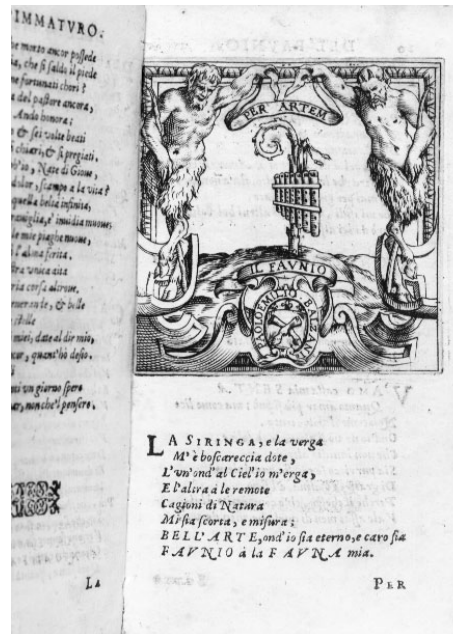 IMMATVRO.
morto ancor possede
che sì saldo il piede
fortunati chori?
del pastore ancora,
Ando honora;
& sei volte beati
chiari, & sì pregiati.
Nate di Gioue,
dolor, scampo a la vita?
quella beltà infinita,
inuidia muoue,
le mie piaghe nuoue,
l'alma ferita.
vnica aita
corso altroue.
& belle
stelle
miei, date al dir mio,
quant'hò desio.
vn giorno spero
non che'l pensero.
LA
PER ARTEM
IL FAVNIO
PAOLO EMILIO BALZANI
LA SIRINGA, e la verga
M'è boscareccia dote,
L'vn'ond'al Ciel'io m'erga,
E l'altra à le remote
Cagioni di Natura
Mi sia scorta, e misura:
BELL'ARTE, ond'io sia eterno, e caro sia
FAVNIO à la FAVNA mia.
PER